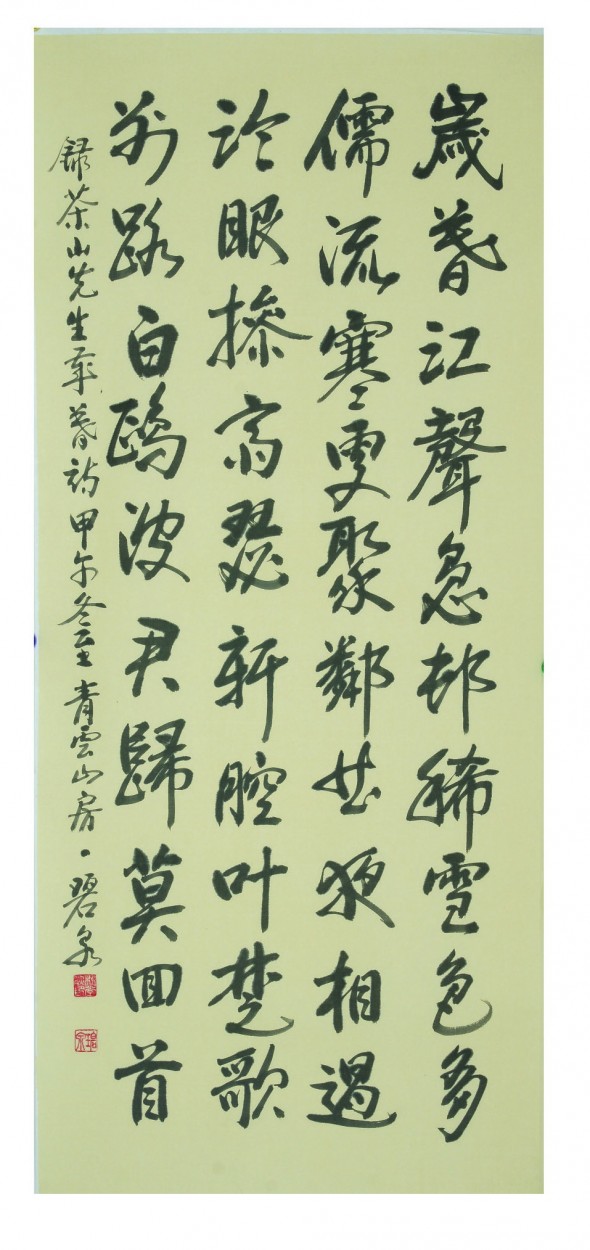 歲暮江聲急邨稀雪色多
儒流寒更聚鄰曲夜相過
冷眼操齊瑟新腔叶楚歌
前路白鷗波君歸莫回首
錄茶山先生歲暮詩甲午冬至 青雲山房・碧泉